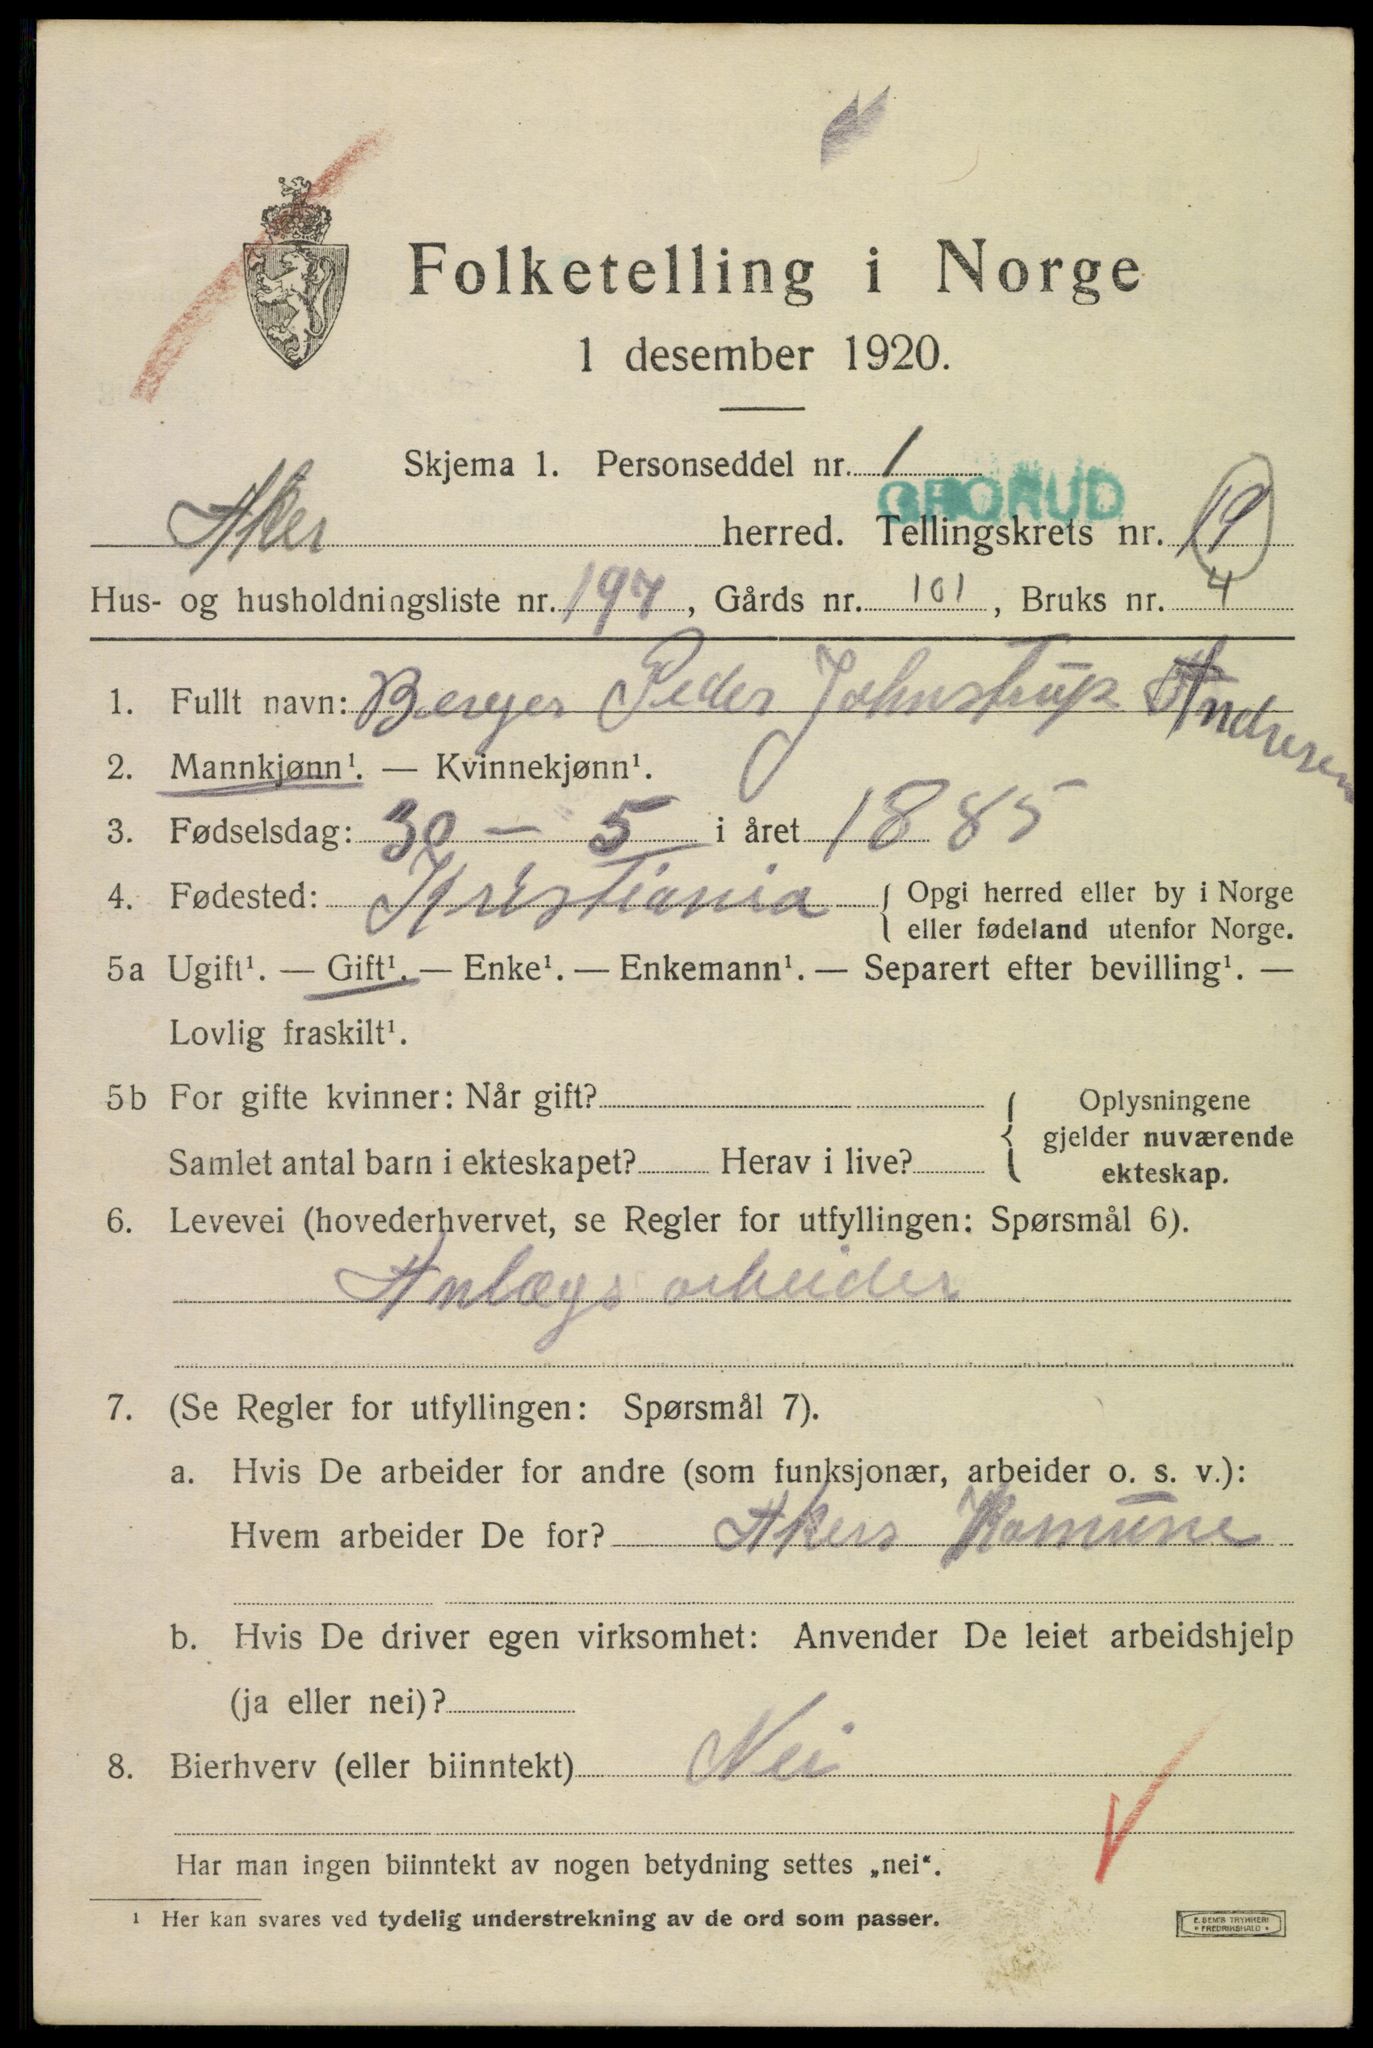 Folketelling i Norge
1 desember 1920.
Skjema 1. Personseddel nr. 1
GRORUD
Aker herred. Tellingskrets nr. 19
Hus- og husholdningsliste nr. 197, Gårds nr. 101, Bruks nr. 4
1. Fullt navn: Berger Peder Johnstrup Andresen
2. Mannkjønn¹. — Kvinnekjønn¹.
3. Fødselsdag: 30 – 5 i året 1885
4. Fødested: Kristiania { Opgi herred eller by i Norge
eller fødeland utenfor Norge.
5a Ugift¹. — Gift¹. — Enke¹. — Enkemann¹. — Separert efter bevilling¹. —
Lovlig fraskilt¹.
5b For gifte kvinner: Når gift? { Oplysningene
gjelder nuværende
Samlet antal barn i ekteskapet? Herav i live? ekteskap.
6. Levevei (hovederhvervet, se Regler for utfyllingen: Spørsmål 6).
Anlægs arbeider
7. (Se Regler for utfyllingen: Spørsmål 7).
a. Hvis De arbeider for andre (som funksjonær, arbeider o. s. v.):
Hvem arbeider De for? Akers Komune
b. Hvis De driver egen virksomhet: Anvender De leiet arbeidshjelp
(ja eller nei)?
8. Bierhverv (eller biinntekt) Nei
Har man ingen biinntekt av nogen betydning settes „nei“.
¹ Her kan svares ved tydelig understrekning av de ord som passer.
E. SEM'S TRYKKERI
* FREDRIKSHALD *